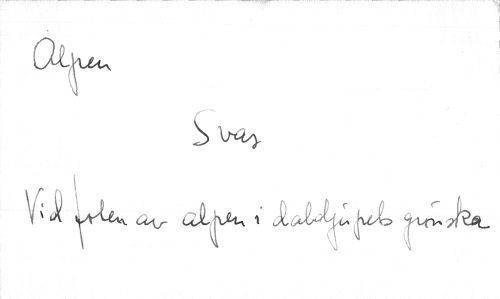 Alpen
Svar
Vid foten av alpen i daldjupets grönska